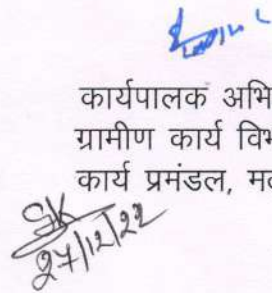 कार्यपालक अभि
ग्रामीण कार्य विभ
कार्य प्रमंडल, मद
SK
27/12/22